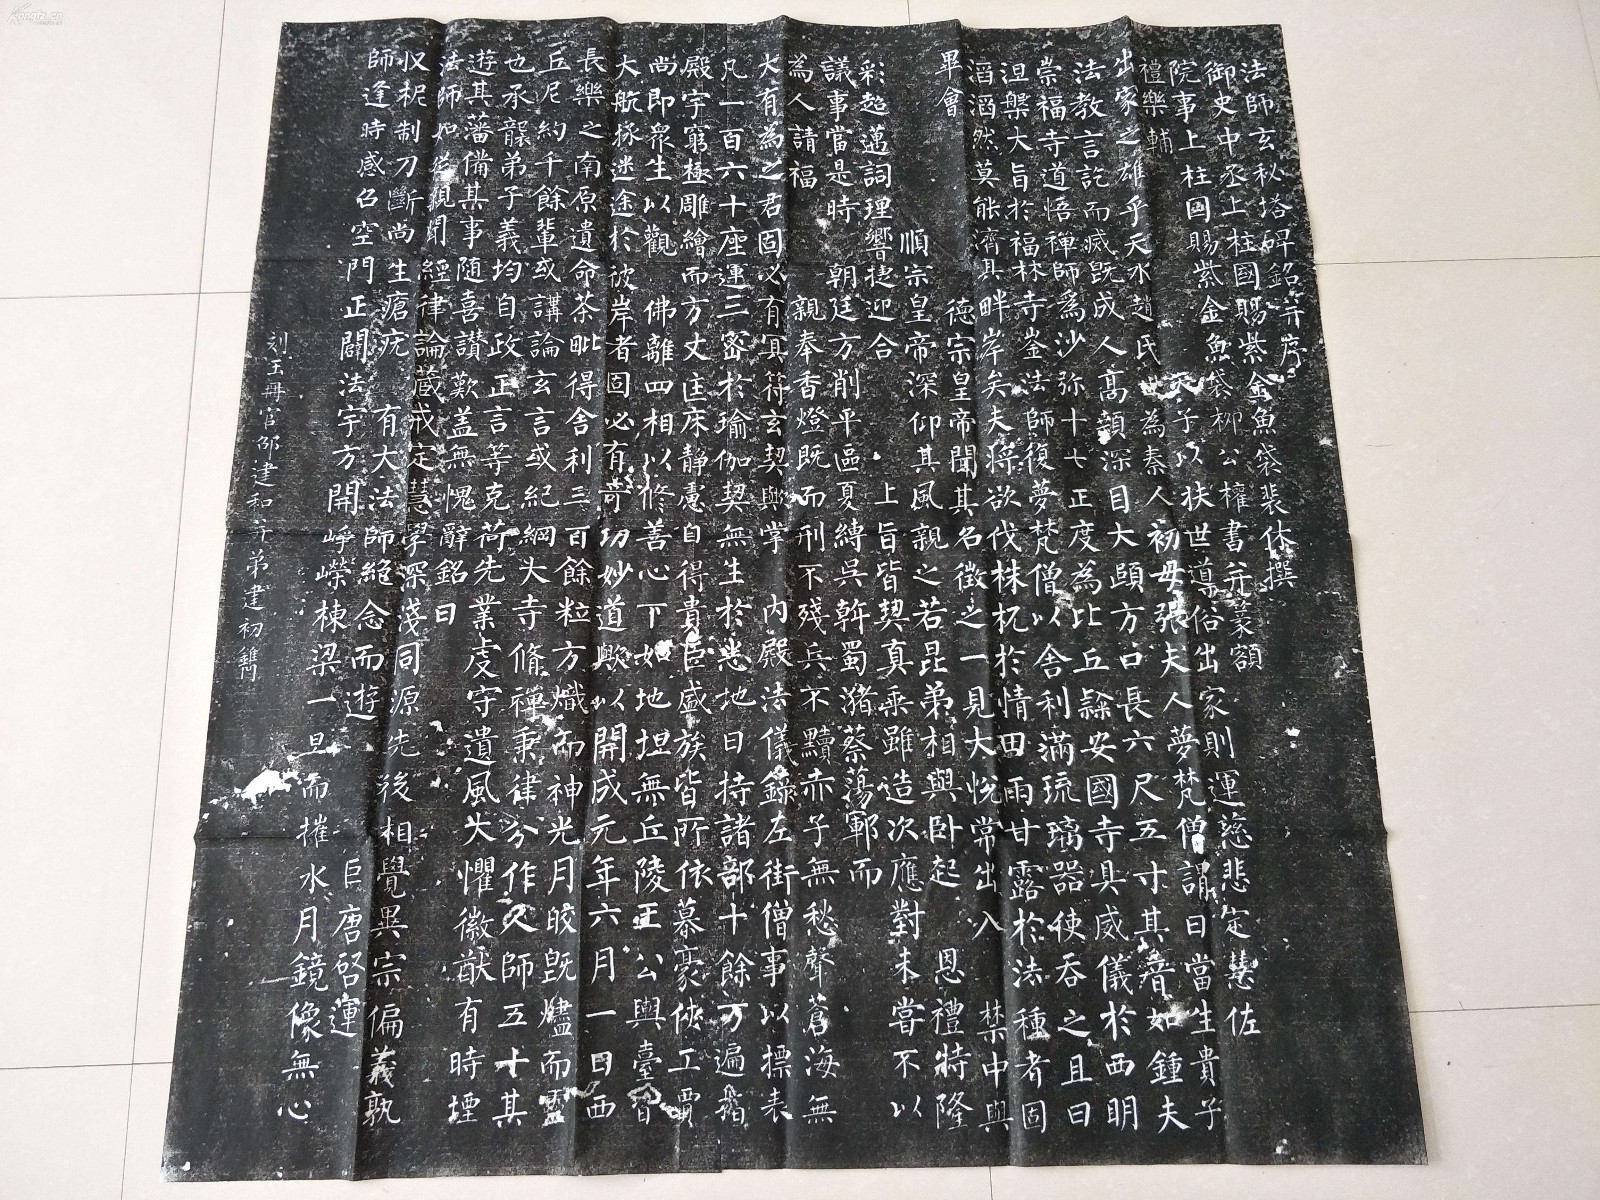 法師玄秘塔碑銘并序
御史中丞上柱國賜紫金魚袋裴休撰
院事上柱國賜紫金魚袋柳公權書并篆額
禮樂輔　天子以扶世導俗出家則運慈悲定慧佐
出家之雄乎天水趙氏世為秦人初母張夫人夢梵僧謂曰當生貴子
法教言訖而滅既成人高顙深目大頤方口長六尺五寸其音如鍾夫
崇福寺道悟禪師為沙弥十七正度為比丘隸安國寺具威儀於西明
涅槃大旨於福林寺崟法師復夢梵僧以舍利滿琉璃器使吞之且曰
滔滔然莫能濟其畔岸矣夫將欲伐株杌於情田雨甘露於法種者固
畢會　德宗皇帝聞其名徵之一見大悅常出入　禁中與
順宗皇帝深仰其風親之若昆弟相與臥起　恩禮特隆
彩超邁詞理響捷迎合　上旨皆契真乘雖造次應對未甞不以
議事當是時　朝廷方削平區夏縛吳斡蜀瀦蔡蕩鄆而
為人請福　親奉香燈既而刑不殘兵不黷赤子無愁聲蒼海無
大有為之君固必有冥符玄契歟掌　內殿法儀錄左街僧事以摽表
凡一百六十座運三密於瑜伽契無生於悉地日持諸部十餘万遍指
殿宇窮極雕繪而方丈匡床静慮自得貴臣盛族皆所依慕豪俠工賈
尚即眾生以觀　佛離四相以修善心下如地坦無丘陵王公輿臺皆
大航拯迷途於彼岸者固必有奇功妙道歟以開成元年六月一日西
長樂之南原遺命荼毗得舍利三百餘粒方熾而神光月皎既燼而靈
丘尼約千餘輩或講論玄言或紀綱大寺脩禪秉律分作人師五十其
也承襲弟子義均自政正言等克荷先業虔守遺風大懼徽猷有時堙
遊其藩備其事随喜讚歎盖無愧辭銘曰
法師如從親聞經律論藏戒定慧學深淺同源先後相覺異宗偏義孰
收柅制刀斷尚生瘡疣　有大法師絕念而遊　巨唐啓運
師逢時感召空門正闢法宇方開崢嶸棟梁一旦而摧水月鏡像無心
刻玉冊官邵建和并弟建初鐫